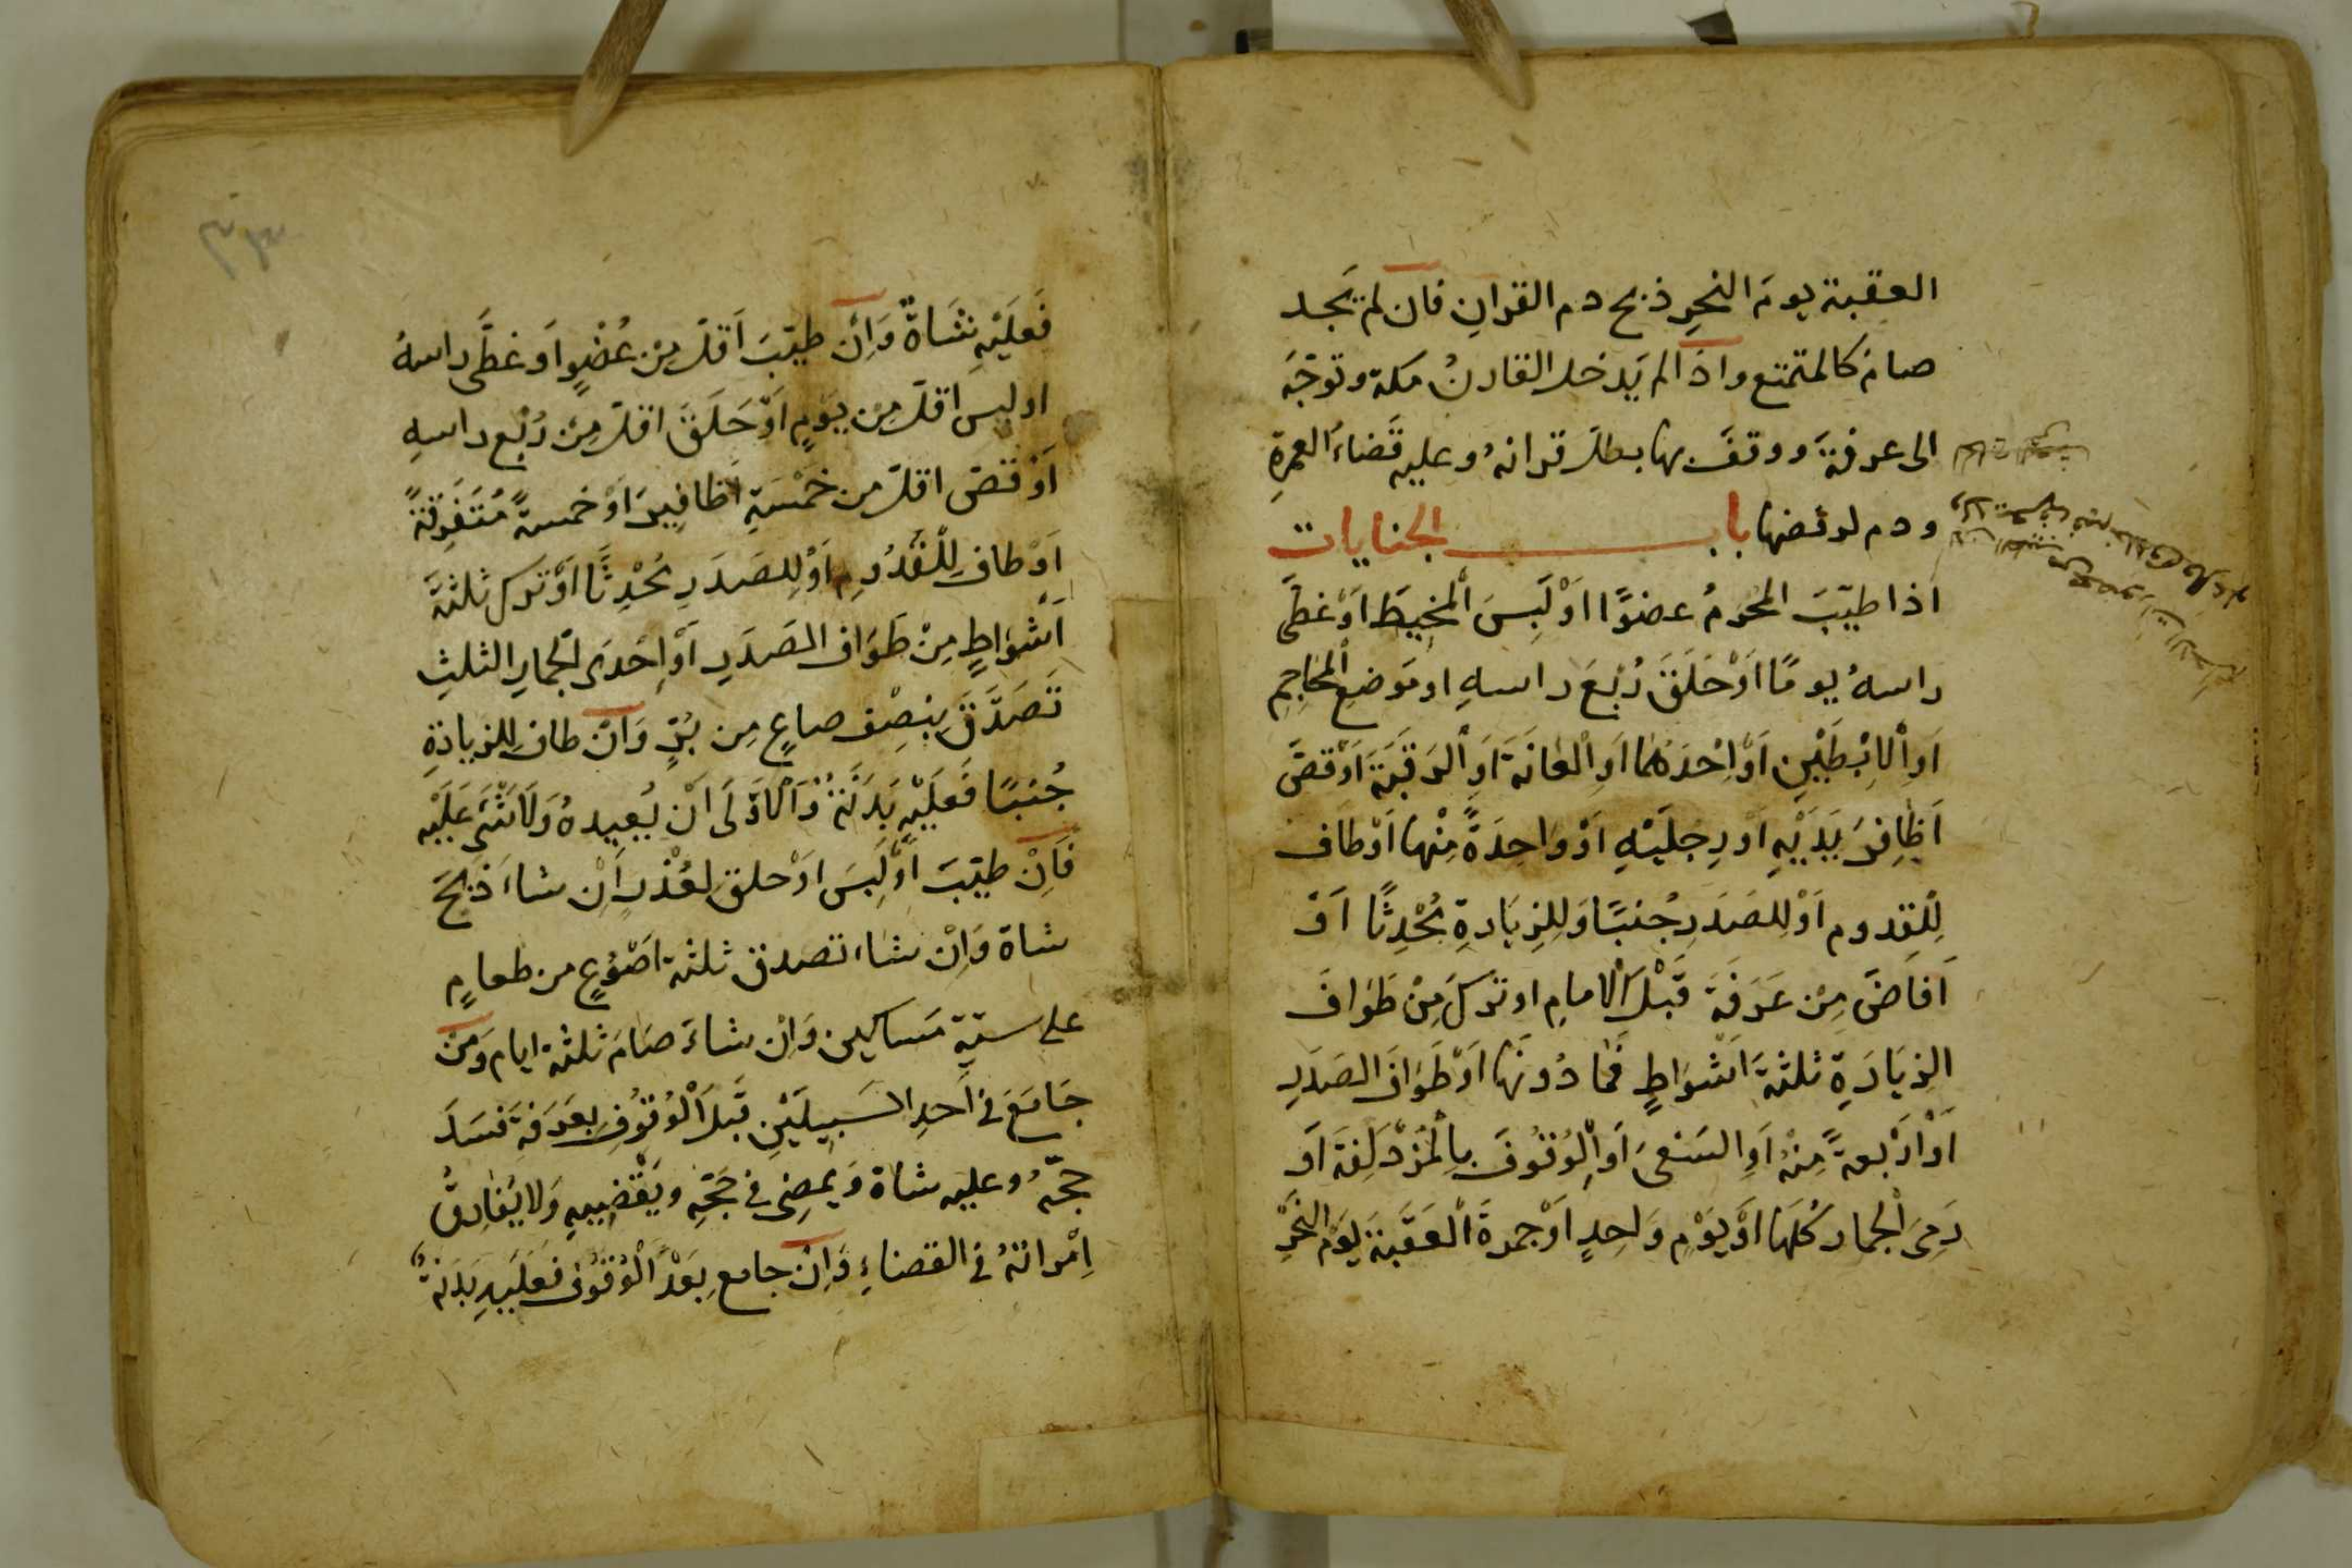 العقبة يومَ النحرِ ذبح دم القرانِ فان لم يَجد
صامَ كالمتمتع واذا لم يَدخل القارنُ مكة وتوجّهَ
الى عرفةَ ووقفَ بها بطلَ قرانهُ وعليه قَضاءُ العمرةِ
ودم لرفضها باب الجنايات
اذا طيّبَ المحرمُ عضوًا اَوْ لَبِسَ اْلمخيطَ اَوْ غطّى
راسهُ يومًا اَوْ حَلَقَ رُبْعَ راسهِ او مَوضعِ المحَاجِمِ
اَوِ اْلاِبْطَيْنِ اَوْ اِحْدَهُمَا اَوِ الْعَانَةَ اَوِ اْلرَقَبَةَ اَوْ قصَّ
اَظَافِرَ يَدَيْهِ اَوْ رِجلَيْهِ اَوْ وَاحِدَةً مِنْها اَوْ طاف
لِلْقدوم اَوْ لِلصَدَرِ جُنبًا وَلِلزِيَارةِ مُحْدِثًا اَوْ
اَفَاضَ مِنْ عَرَفَةَ قَبْلَ اْلامامِ او تركَ مِنْ طَوَافَ
الزِيَارَةِ ثلثةَ اَشْوَاطٍ فَما دُونَهَا اَوْ طَوَافَ الصَدَرِ
اَوْ اَرْبعةً مِنْهُ اَوِ السَعْىَ اَوِ اْلوُقُوفَ بِاْلمُزْدَلِفَةَ اَوْ
رَمِىَ اْلجمار كُلهَا اَوْ يَوْمٍ وَاحِدٍ اَوْ جمرةَ اْلعَقَبَةَ يَوْمَ النَحْرِ
فَعَلَيْهِ شَاةٌ وَاِنْ طيّبَ اَقلّ مِن عُضْوٍ اَو غطَّى راسهُ
او لبس اقلّ مِنْ يَوْمٍ اَوْ حَلَقَ اقلّ مِنْ رُبْعِ راسهِ
اَوْ قصّ اقلّ من خَمْسَةِ اَظافِيرَ اَوْ خمسةً مُتَفَرِقَةً
اَوْ طاف لِلْقُدُومِ اَوْ لِلصَدَرِ مُحْدِثًا اَوْ تَركَ ثلثةَ
اَشْوَاطٍ مِنْ طَوَاف الصَدَرِ اَوْ اِحْدَى اْلجمارِ الثلثِ
تَصَدَّقَ بِنِصْفِ صاعٍ مِن بُرٍّ وَاِنْ طاف لِلزيارةِ
جُنبًا فَعَلَيْهِ بَدَنَةٌ وَاْلاَوْلَى اَنْ يُعِيدهُ وَلَا شَئَ عَلَيْهِ
فَاِنْ طيّبَ اَوْ لَبِسَ اَوْ حلق لِعُذْرٍ اِنْ شاءَ ذبَحَ
شاة وَاِنْ شاء تصدق ثلثة اَصْوُعٍ من طعامٍ
على ستةِ مَساكين وَاِنْ شاءَ صَامَ ثلثة ايام وَمَنْ
جَامَعَ فى اَحدِ السَبِيلَيْنِ قَبلَ اْلوُقُوفِ بعَرَفَةَ فَسَدَ
حجّهُ وعليه شاة وَيمضِى فى حَجّهِ ويَقْضِيهِ وَلا يُفَارِقُ
اِمْراتهُ فى القضاءِ وَاِنْ جامع بَعْدَ اْلوُقُوف فَعَلَيْهِ بَدَنَةٌ